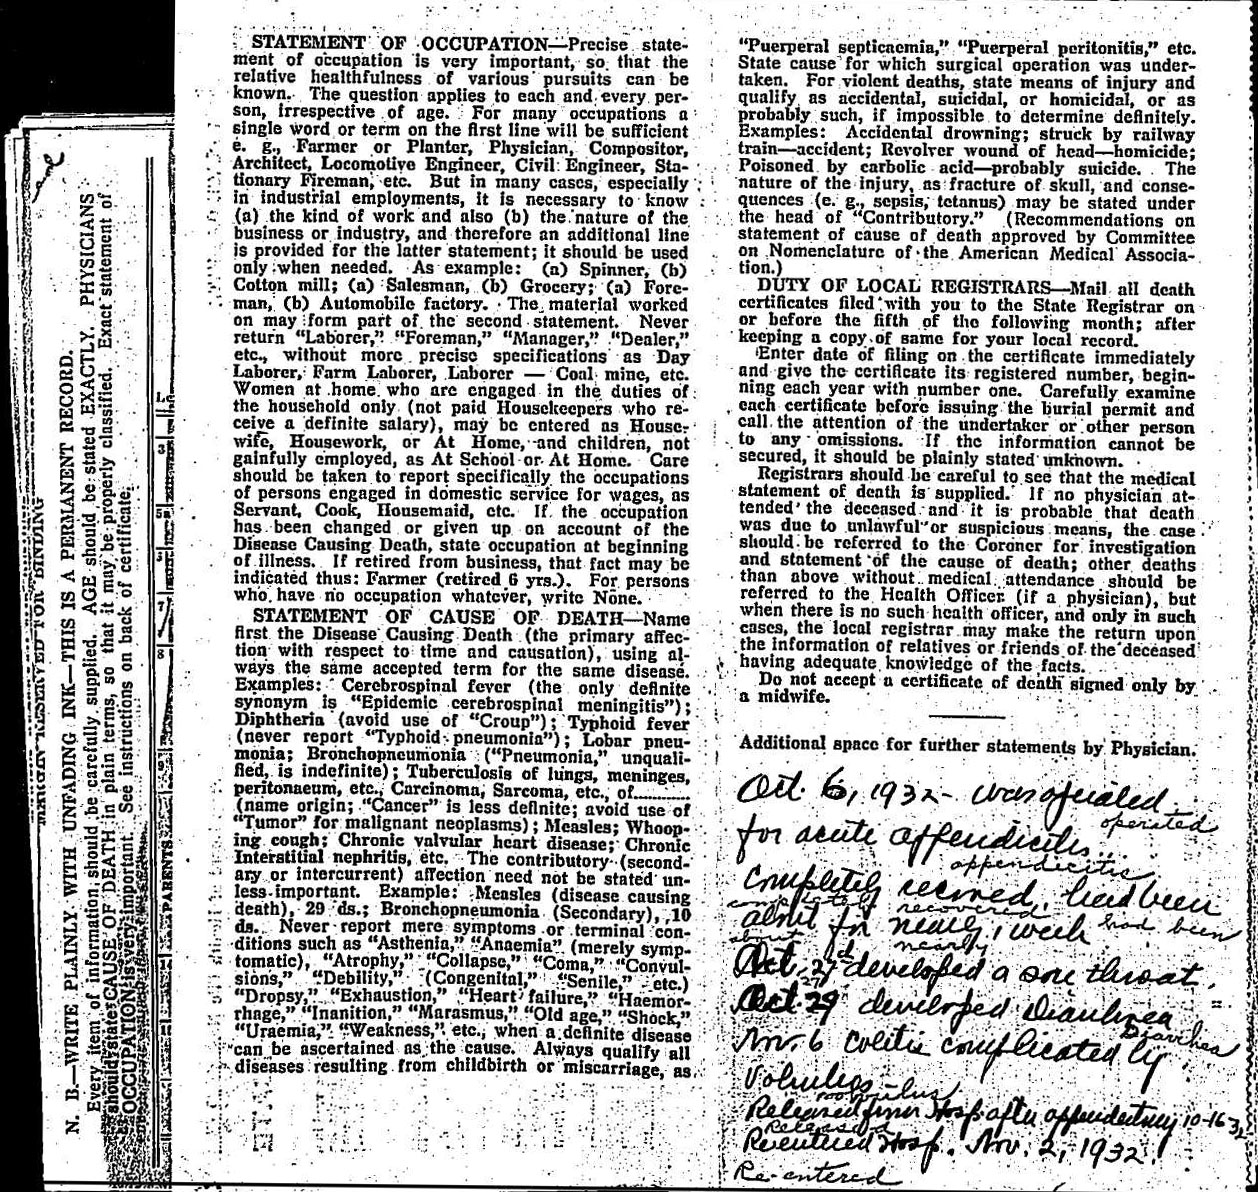 STATEMENT OF OCCUPATION—Precise state-
ment of occupation is very important, so that the
relative healthfulness of various pursuits can be
known. The question applies to each and every per-
son, irrespective of age. For many occupations a
single word or term on the first line will be sufficient
e. g., Farmer or Planter, Physician, Compositor,
Architect, Locomotive Engineer, Civil Engineer, Sta-
tionary Fireman, etc. But in many cases, especially
in industrial employments, it is necessary to know
(a) the kind of work and also (b) the nature of the
business or industry, and therefore an additional line
is provided for the latter statement; it should be used
only when needed. As example: (a) Spinner, (b)
Cotton mill; (a) Salesman, (b) Grocery; (a) Fore-
man, (b) Automobile factory. The material worked
on may form part of the second statement. Never
return "Laborer," "Foreman," "Manager," "Dealer,"
etc., without more precise specifications as Day
Laborer, Farm Laborer, Laborer — Coal mine, etc.
Women at home who are engaged in the duties of
the household only (not paid Housekeepers who re-
ceive a definite salary), may be entered as House-
wife, Housework, or At Home, and children, not
gainfully employed, as At School or At Home. Care
should be taken to report specifically the occupations
of persons engaged in domestic service for wages, as
Servant, Cook, Housemaid, etc. If the occupation
has been changed or given up on account of the
Disease Causing Death, state occupation at beginning
of illness. If retired from business, that fact may be
indicated thus: Farmer (retired 6 yrs.). For persons
who have no occupation whatever, write None.
STATEMENT OF CAUSE OF DEATH—Name
first the Disease Causing Death (the primary affec-
tion with respect to time and causation), using al-
ways the same accepted term for the same disease.
Examples: Cerebrospinal fever (the only definite
synonym is "Epidemic cerebrospinal meningitis");
Diphtheria (avoid use of "Croup"); Typhoid fever
(never report "Typhoid pneumonia"); Lobar pneu-
monia; Bronchopneumonia ("Pneumonia," unquali-
fied, is indefinite); Tuberculosis of lungs, meninges,
peritonaeum, etc., Carcinoma, Sarcoma, etc., of..........
(name origin; "Cancer" is less definite; avoid use of
"Tumor" for malignant neoplasms); Measles; Whoop-
ing cough; Chronic valvular heart disease; Chronic
Interstitial nephritis, etc. The contributory (second-
ary or intercurrent) affection need not be stated un-
less important. Example: Measles (disease causing
death), 29 ds.; Bronchopneumonia (Secondary), 10
ds. Never report mere symptoms or terminal con-
ditions such as "Asthenia," "Anaemia" (merely symp-
tomatic), "Atrophy," "Collapse," "Coma," "Convul-
sions," "Debility," (Congenital," "Senile," etc.)
"Dropsy," "Exhaustion," "Heart failure," "Haemor-
rhage," "Inanition," "Marasmus," "Old age," "Shock,"
"Uraemia," "Weakness," etc., when a definite disease
can be ascertained as the cause. Always qualify all
diseases resulting from childbirth or miscarriage, as
"Puerperal septicaemia," "Puerperal peritonitis," etc.
State cause for which surgical operation was under-
taken. For violent deaths, state means of injury and
qualify as accidental, suicidal, or homicidal, or as
probably such, if impossible to determine definitely.
Examples: Accidental drowning; struck by railway
train—accident; Revolver wound of head—homicide;
Poisoned by carbolic acid—probably suicide. The
nature of the injury, as fracture of skull, and conse-
quences (e. g., sepsis, tetanus) may be stated under
the head of "Contributory." (Recommendations on
statement of cause of death approved by Committee
on Nomenclature of the American Medical Associa-
tion.)
DUTY OF LOCAL REGISTRARS—Mail all death
certificates filed with you to the State Registrar on
or before the fifth of the following month; after
keeping a copy of same for your local record.
Enter date of filing on the certificate immediately
and give the certificate its registered number, begin-
ning each year with number one. Carefully examine
each certificate before issuing the burial permit and
call the attention of the undertaker or other person
to any omissions. If the information cannot be
secured, it should be plainly stated unknown.
Registrars should be careful to see that the medical
statement of death is supplied. If no physician at-
tended the deceased and it is probable that death
was due to unlawful or suspicious means, the case
should be referred to the Coroner for investigation
and statement of the cause of death; other deaths
than above without medical attendance should be
referred to the Health Officer (if a physician), but
when there is no such health officer, and only in such
cases, the local registrar may make the return upon
the information of relatives or friends of the deceased
having adequate knowledge of the facts.
Do not accept a certificate of death signed only by
a midwife.
Additional space for further statements by Physician.
Oct. 6, 1932 - was operated
operated
for acute appendicitis
appendicitis
completely recovered, had been
completely recovered
about for nearly 1 week had been
about nearly
Oct. 27 developed a sore throat.
27
Oct. 29 developed Diarrhea
Diarrhea
Nov. 6 Colitis complicated by
Volvulus
Released from Hosp after appendectomy 10-16-32
Released
Re-entered Hosp. Nov. 2, 1932.
Re-entered
MARGIN RESERVED FOR BINDING
N. B.—WRITE PLAINLY WITH UNFADING INK—THIS IS A PERMANENT RECORD.
Every item of information should be carefully supplied. AGE should be stated EXACTLY. PHYSICIANS
should state CAUSE OF DEATH in plain terms, so that it may be properly classified. Exact statement of
OCCUPATION is very important. See instructions on back of certificate.
PARENTS
3
5
7
8
9
11